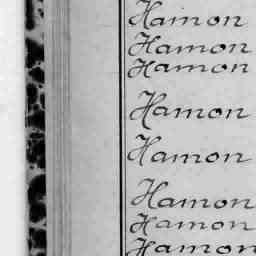 Hamon
Hamon
Hamon
Hamon
Hamon
Hamon
Hamon
Hamon